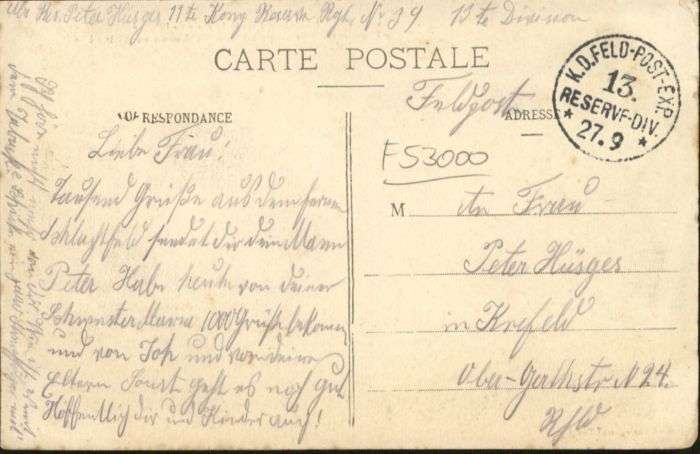 Res. Peter Hüsger 11te Komp Reserve Rgt. No 39 13te Division
CARTE POSTALE
CORRESPONDANCE
Liebe Frau!
Tausend Grüße aus dem fernen
Schlachtfeld sendet dir dein Mann
Peter Habe heute von deiner
Schwester Maria 1000 Grüße bekomm
und von Joh und von deine
Eltern Sonst geht es noch gut
Hoffentlich dir und Kinder auch!
Feldpost
ADRESSE
FS3000
M
An Frau
Peter Hüsges
in Krefeld
Ober-Gerthstr N 24.
Rhld.
K.D.FELD-POST-EXP.
13.
RESERVE-DIV.
* 27.9 *